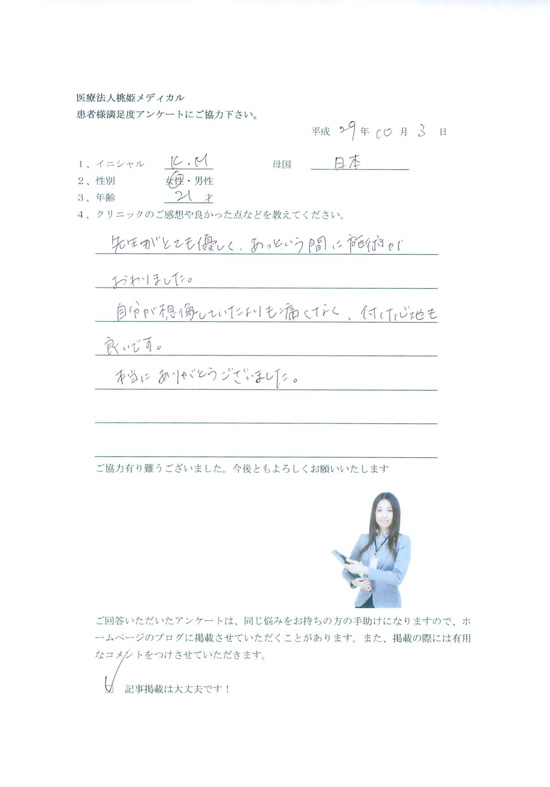 医療法人桃姫メディカル
患者様満足度アンケートにご協力下さい。
平成 29 年 10 月 3 日
1、イニシャル K.M 母国 日本
2、性別 女性・男性
3、年齢 21 才
4、クリニックのご感想や良かった点などを教えてください。
先生がとても優しく、あっという間に施術が
おわりました。
自分が想像していたよりも痛くなく、付け心地も
良いです。
本当にありがとうございました。
ご協力有り難うございました。今後ともよろしくお願いいたします
ご回答いただいたアンケートは、同じ悩みをお持ちの方の手助けになりますので、ホ
ームページのブログに掲載させていただくことがあります。また、掲載の際には有用
なコメントをつけさせていただきます。
記事掲載は大丈夫です！